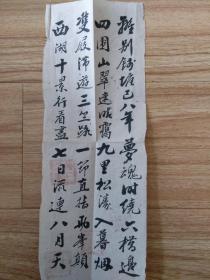 離別錢塘已八年夢魂時繞六橋邊
四圍山翠連晴靄九里松濤入暮烟
雙屐沛遊三竺路一筇直指孤峯巔
西湖十景行看盡七日流連八月天